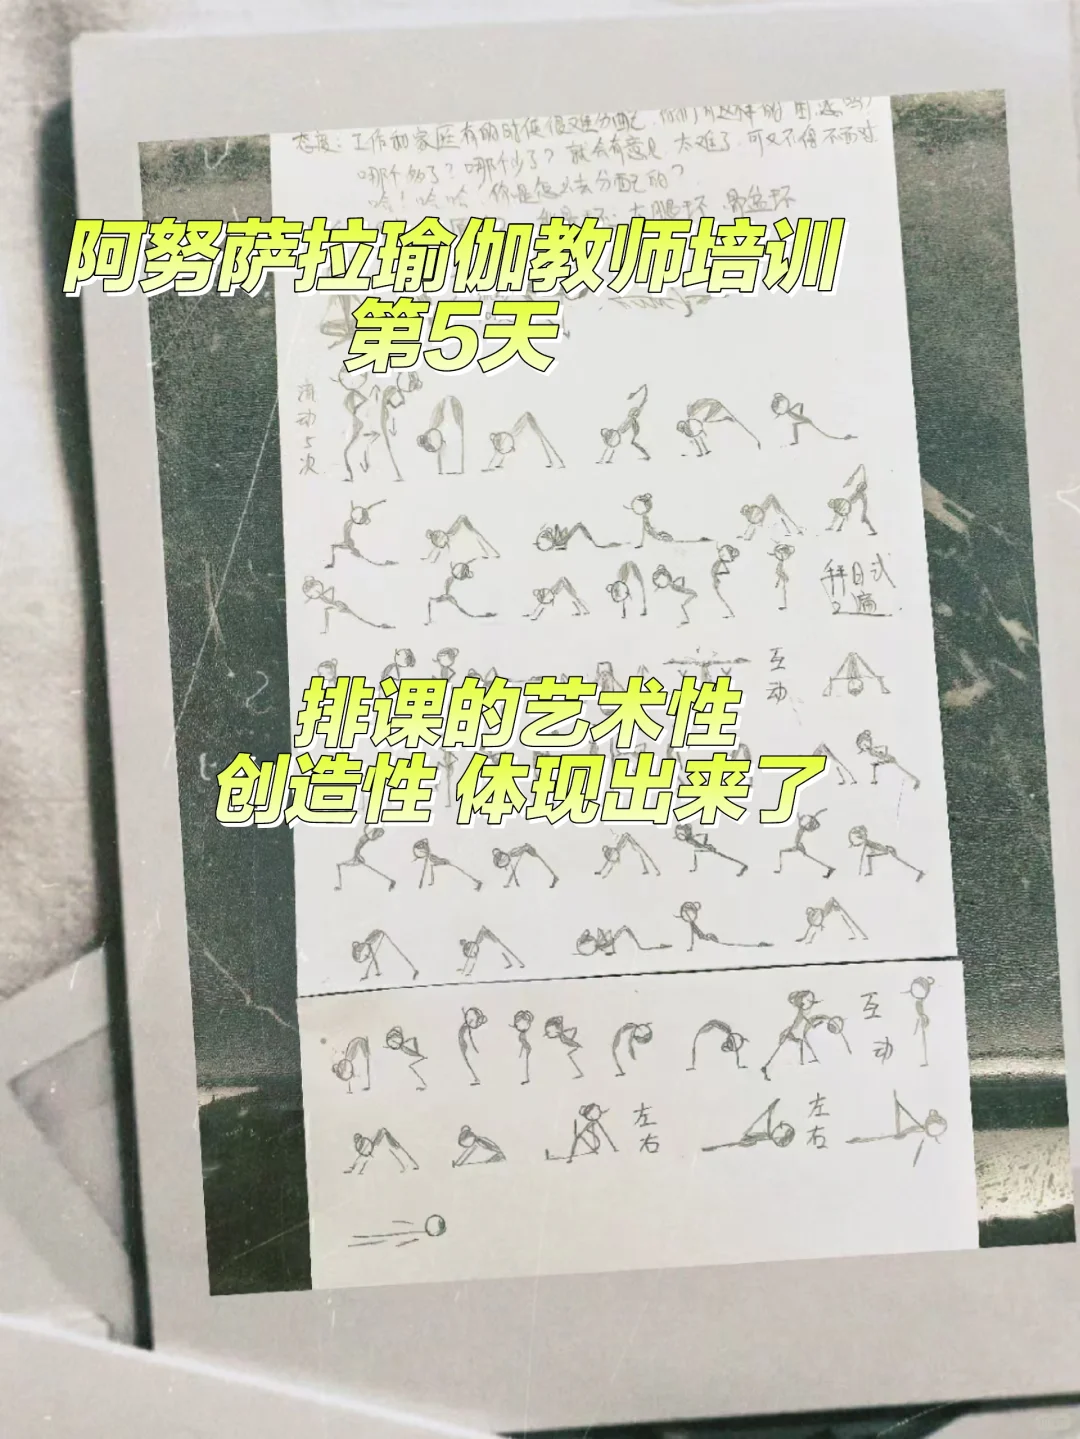 态度：工作和家庭有的时候很难分配，你们有这样的困惑吗？
哪个多了？哪个少了？就会有意见，太难了，可又不得不面对
哈！哈哈，你是怎么去分配的？
大腿环、骨盆环
阿努萨拉瑜伽教师培训
第5天
流动5次
拜日式
2遍
互动
排课的艺术性
创造性 体现出来了
互动
左右
左右